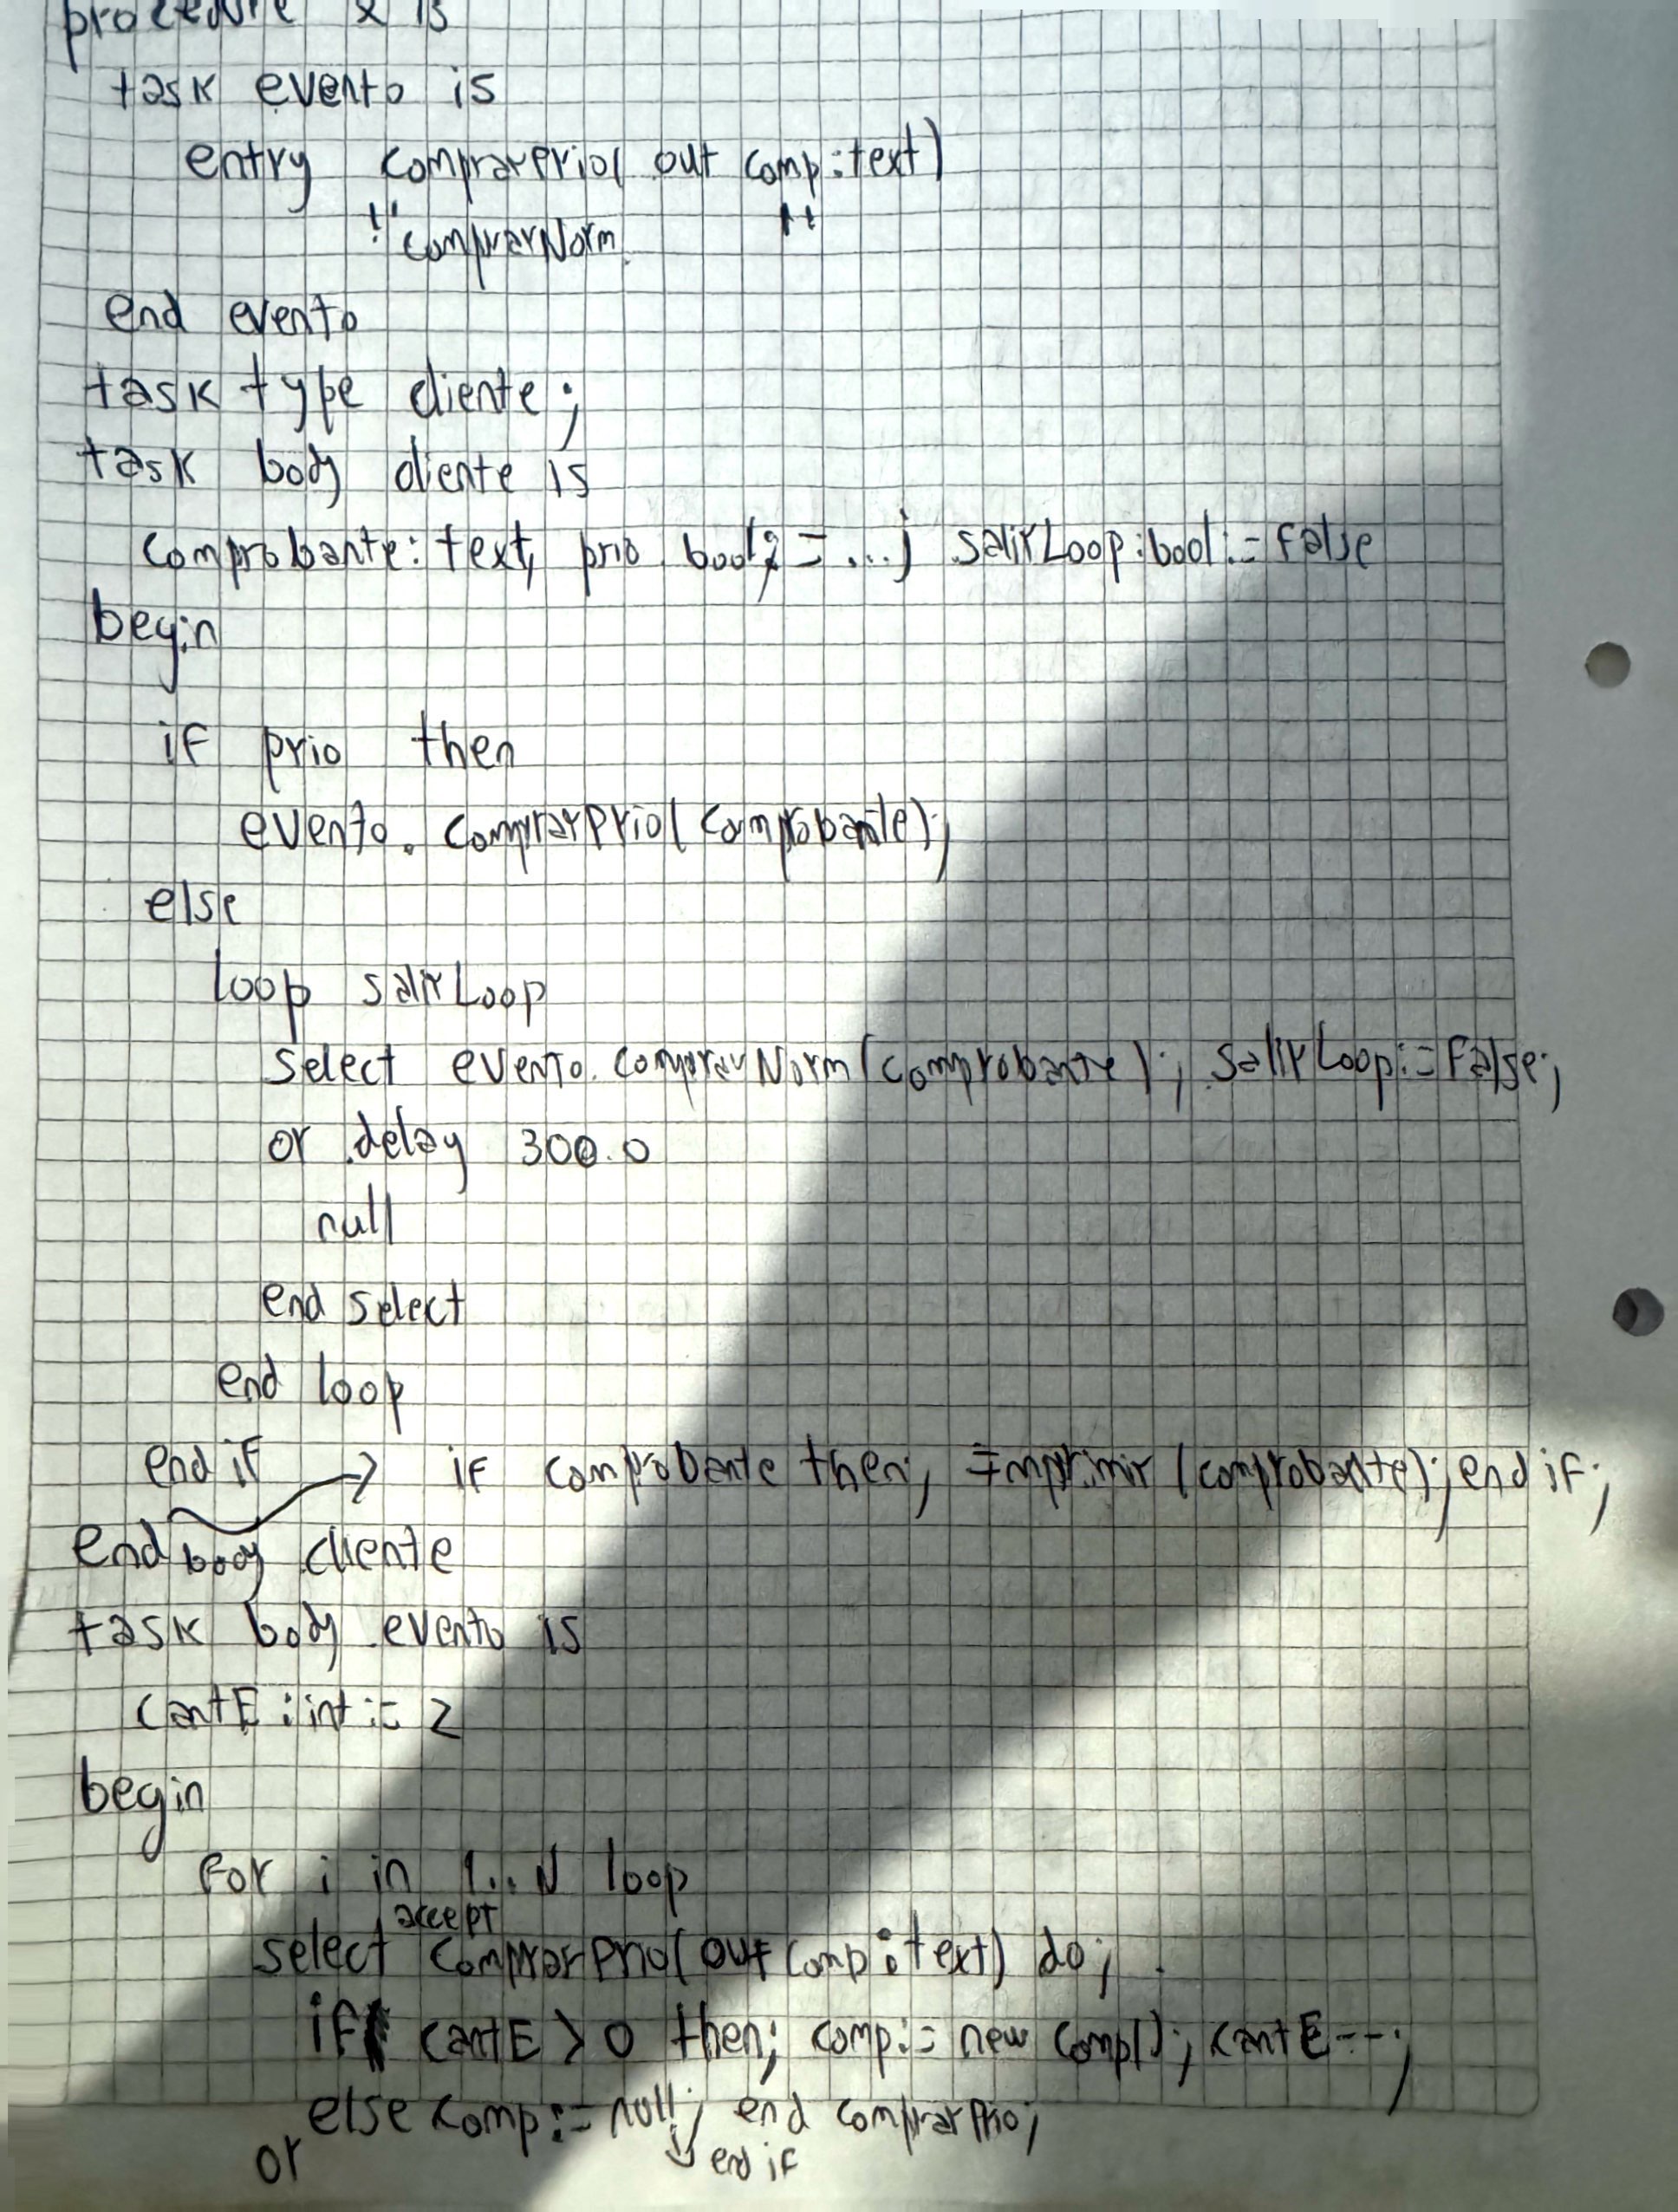 procedure x is
task evento is
entry comprarPrio( out comp:text)
" comprarNorm "
end evento
task type cliente;
task body cliente is
comprobante: text, prio bool:= ...; salirLoop:bool:= false
begin
if prio then
evento.comprarPrio(comprobante);
else
loop salirLoop
select evento.comprarNorm(comprobante); salirLoop:=False;
or delay 300.0
null
end select
end loop
end if → if comprobante then; Imprimir (comprobante); end if;
end body cliente
task body evento is
cantE : int := 2
begin
for i in 1..N loop
accept
select comprarPrio(out comp:text) do;
if cantE > 0 then; comp:= new comp(); cantE--;
else comp:=null; end comprarPrio;
or end if